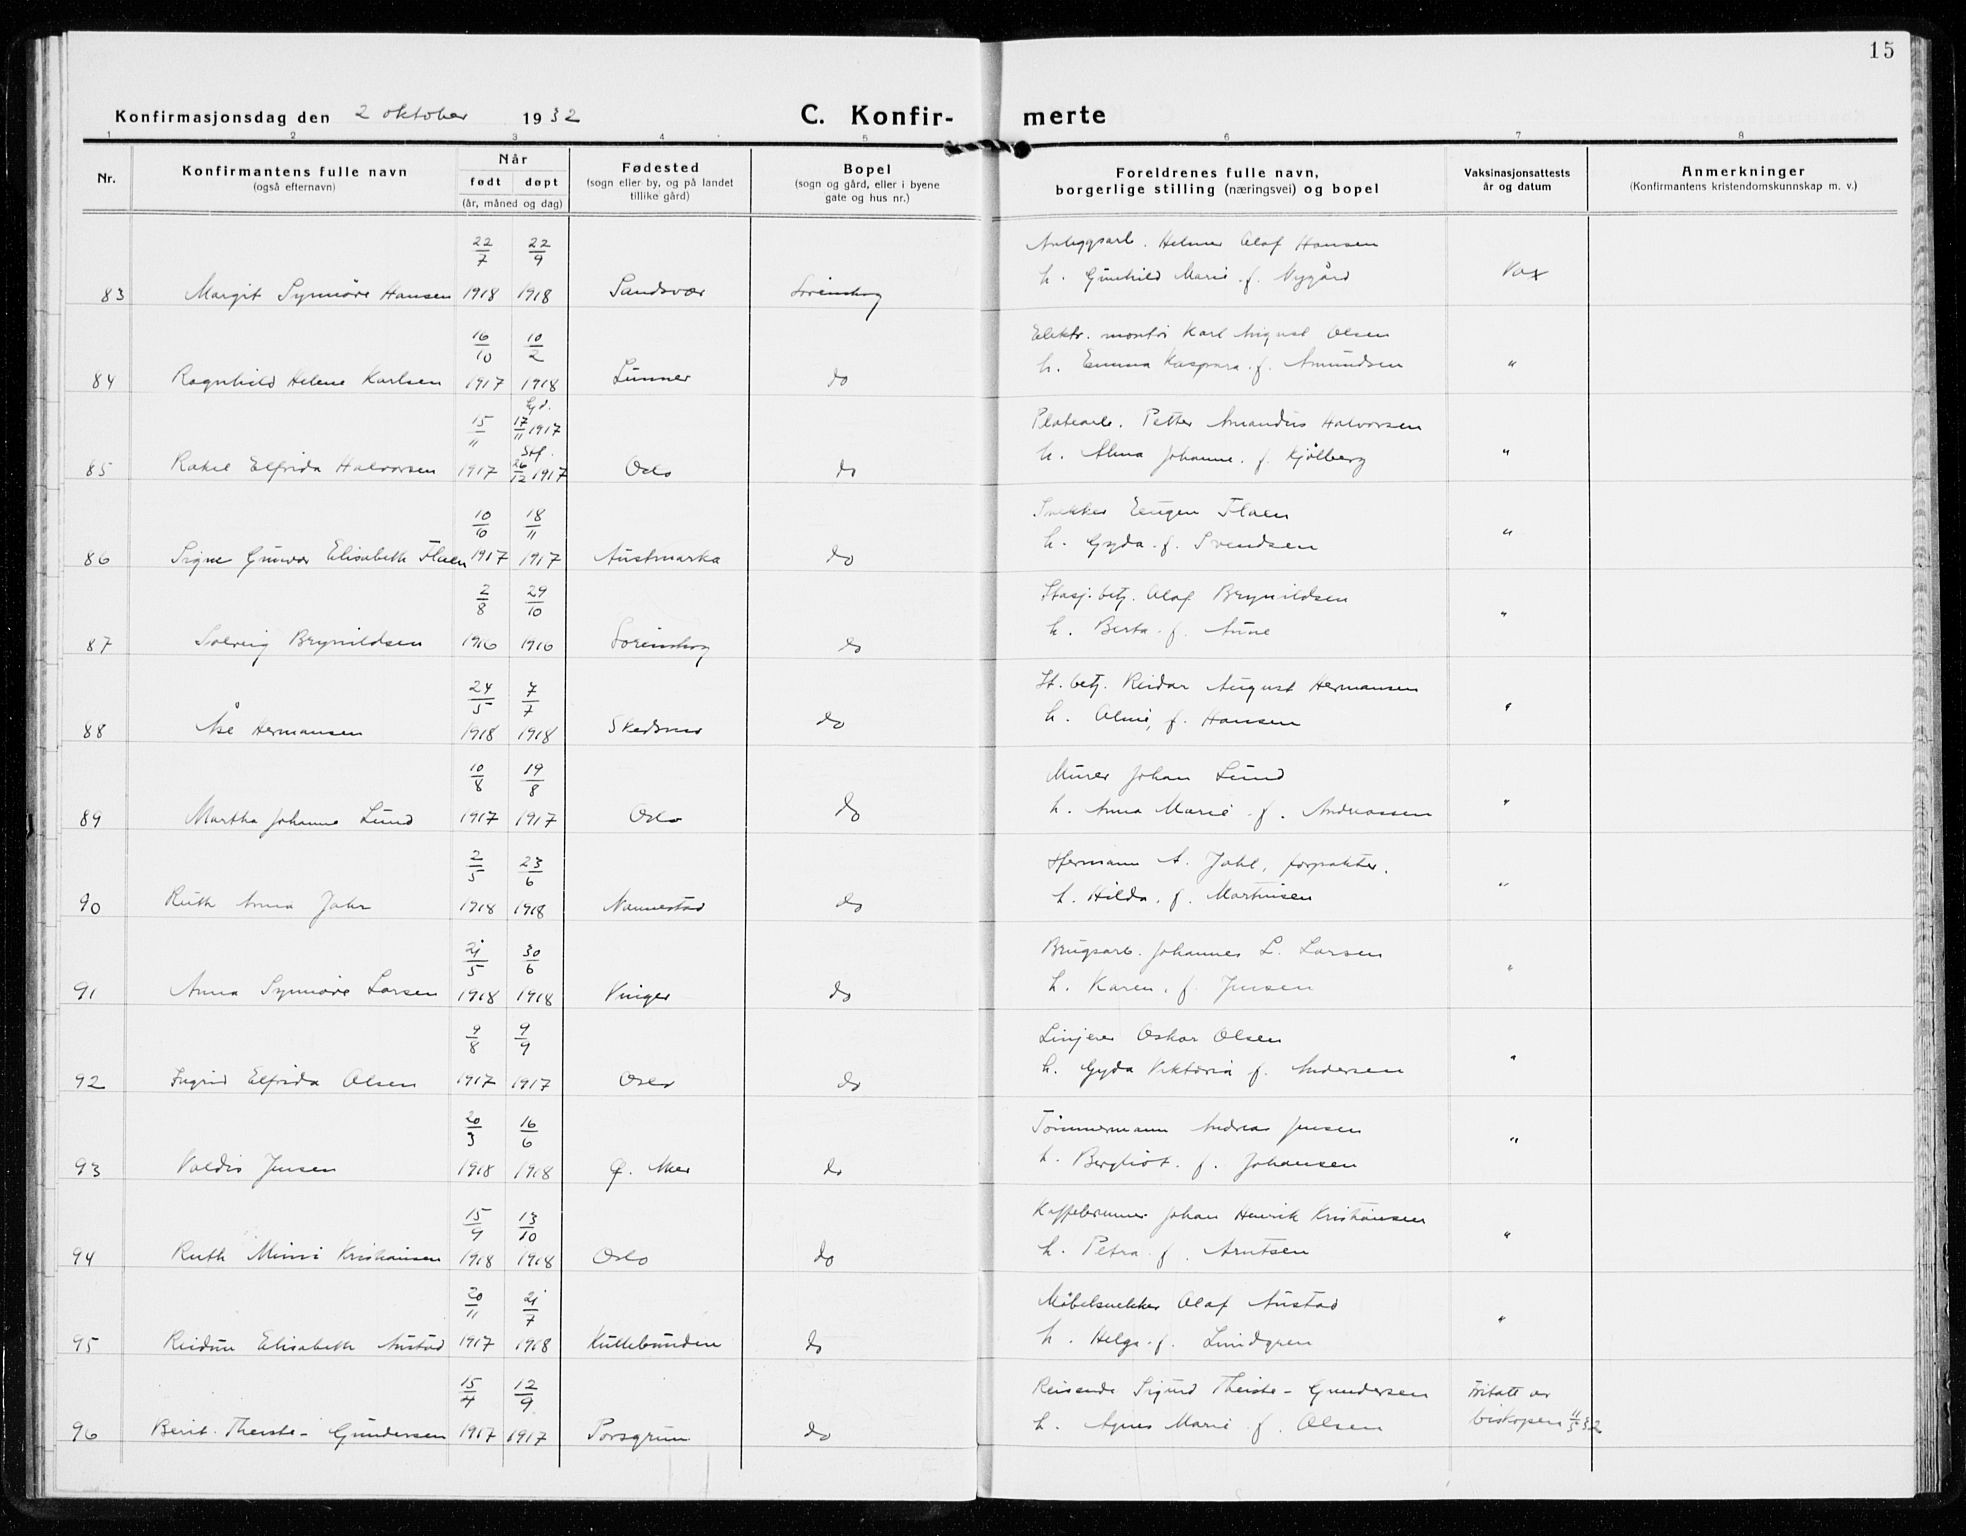 15
Konfirmasjonsdag den 2 oktober 1932 C. Konfir- merte
1 2 3 4 5 6 7 8
Nr.
Konfirmantens fulle navn
(også efternavn)
Når
født døpt
(år, måned og dag)
Fødested
(sogn eller by, og på landet
tillike gård)
Bopel
(sogn og gård, eller i byene
gate og hus nr.)
Foreldrenes fulle navn,
borgerlige stilling (næringsvei) og bopel
Vaksinasjonsattests
år og datum
Anmerkninger
(Konfirmantens kristendomskunnskap m. v.)
22/7 22/9 Anleggsarb. Helmer Olaf Hansen
83 Margit Synnøve Hansen 1918 1918 Sandsvær Lørenskog h. Gunhild Marie f. Nygård Vax
16/10 10/2 Elektr. montør Karl August Olsen
84 Ragnhild Helene Karlsen 1917 1918 Lunner do h. Emma Kaspara f. Amundsen "
15/11 Hjd. 17/11 1917 Platearb. Petter Amandus Halvorsen
85 Rakel Elfrida Halvorsen 1917 Stf. 26/12 1917 Oslo do h. Alma Johanne f. Kjølberg "
10/10 18/11 Snekker Eugen Flaen
86 Signe Gunvor Elisabeth Flaen 1917 1917 Austmarka do h. Gyda f. Svendsen "
2/8 29/10 Stasj. betj. Olaf Brynildsen
87 Solveig Brynildsen 1916 1916 Lørenskog do h. Berta f. Aune "
24/5 7/7 St. betj. Reidar August Hermansen
88 Åse Hermansen 1918 1918 Skedsmo do h. Almi, f. Hansen "
10/8 19/8 Murer Johan Lund
89 Martha Johanne Lund 1917 1917 Oslo do h. Anna Marie f. Andreassen "
2/5 23/6 Hermann A. Jahr, forpakter.
90 Ruth Anna Jahr 1918 1918 Nannestad do h. Hilda, f. Martinsen "
21/5 30/6 Brugsarb. Johannes L. Larsen
91 Anna Synnøve Larsen 1918 1918 Vinger do h. Karen, f. Jensen "
9/8 9/9 Linjerer Oskar Olsen
92 Ingrid Elfrida Olsen 1917 1917 Oslo do h. Gyda Viktoria f. Andersen "
20/3 16/6 Tømmermann Andreas Jensen
93 Valdis Jensen 1918 1918 Ø. Aker do h. Bergliot f. Johansen "
15/9 13/10 Kaffebrenner Johan Henrik Kristiansen
94 Ruth Mimi Kristiansen 1918 1918 Oslo do h. Petra f. Arntsen "
20/11 21/7 Møbelsnekker Olaf Austad
95 Reidun Elisabeth Austad 1917 1918 Kullebunden do h. Helga f. Lindgren "
15/4 12/9 Reisende Sigurd Theiste-Gundersen Fritatt av
96 Berit Theiste-Gundersen 1917 1917 Porsgrunn do h. Agnes Marie f. Olsen biskopen 11/5 32